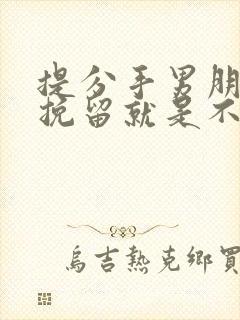 提分手男朋
挽留就是不
烏吉熱克鄉買